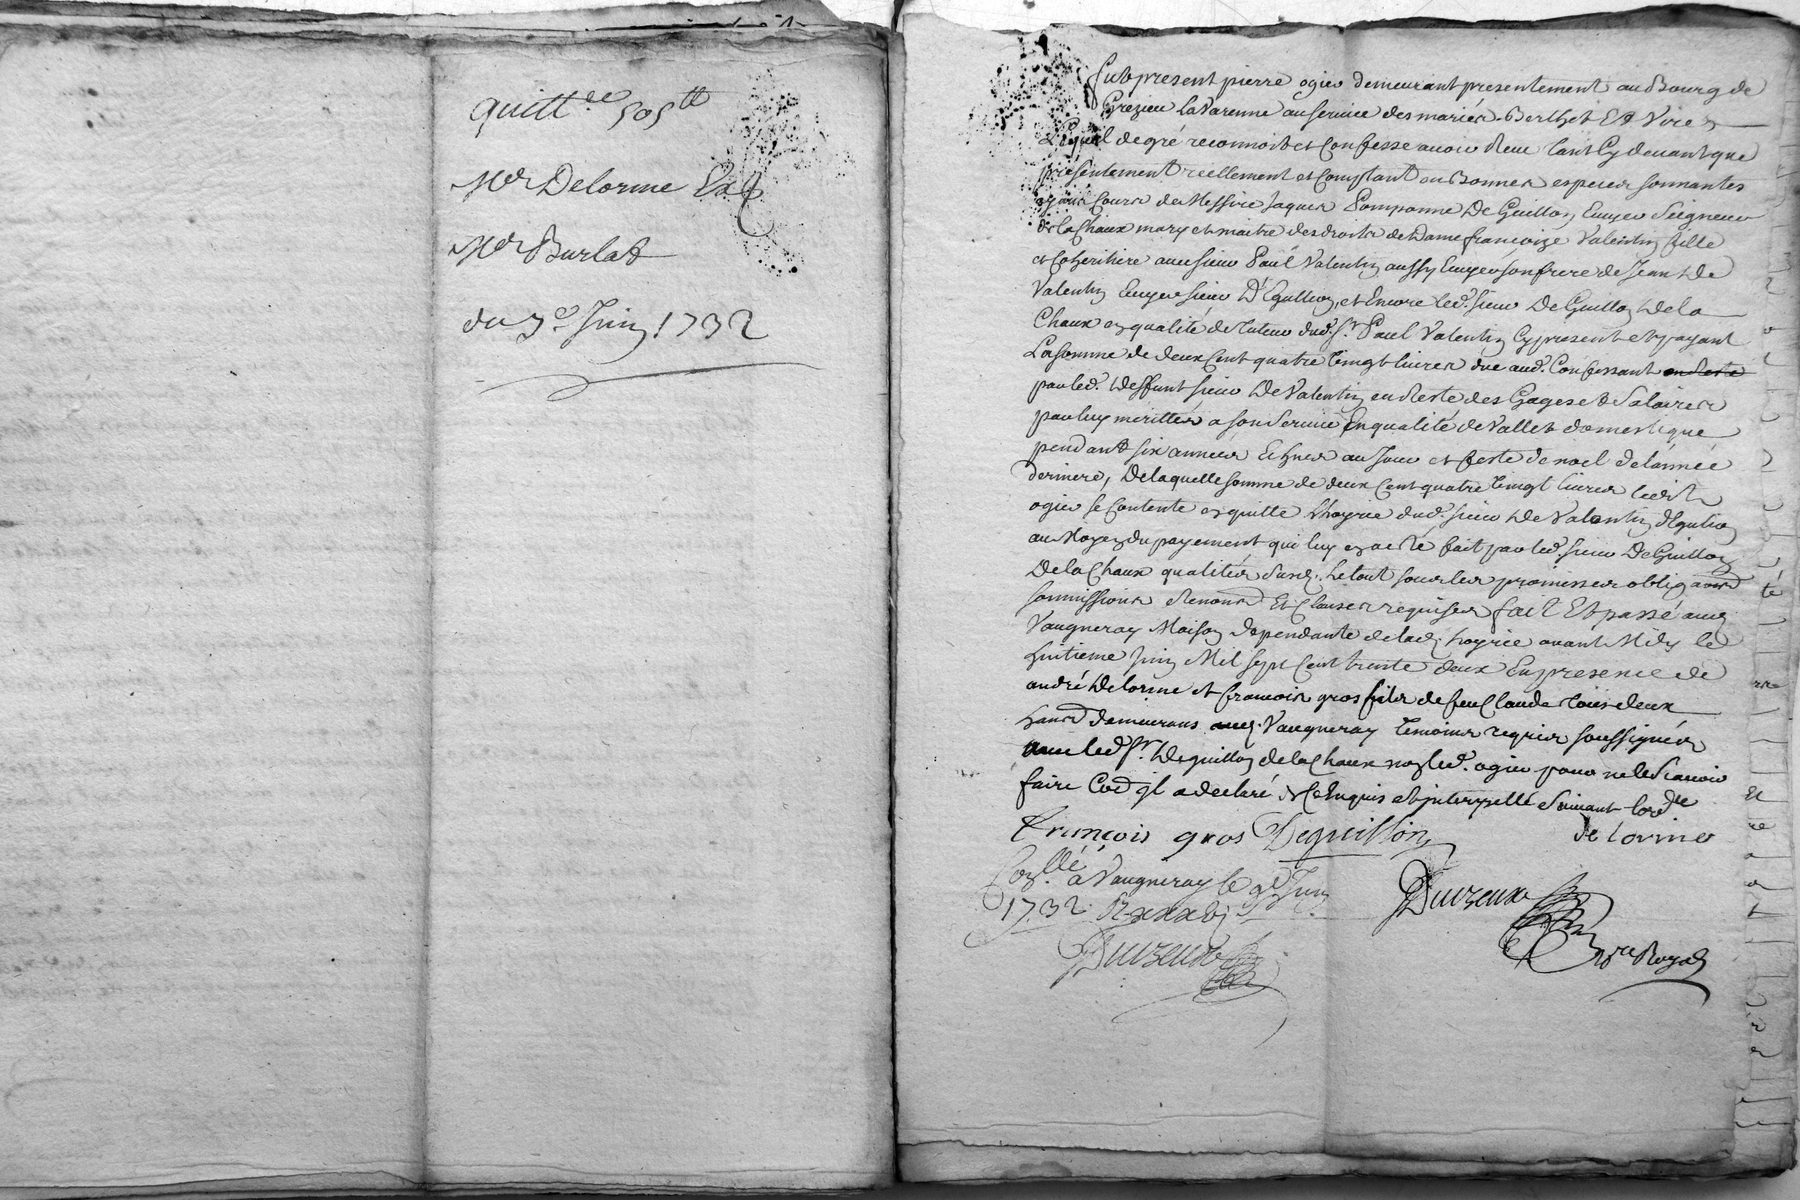 quitt.ce 505 tt
Mer Delorme Et
Mer Burlat
du 7e Juin 1732
Fut present pierre ogier demeurant presentement au Bourg de
Grezieu la Varenne au service des mariés Berthet Et Viret
Lequel de gré reconnoit et Confesse avoir Receu tant Cy devant que
presentement reellement et Comptant en Bonnes especes sonnantes
ayant Cours de Messire Jaques Pomponne De Guillon Ecuyer Seigneur
de la Chaux mary et maitre des droits de Dame francoize Valentin fille
et Coheritiere avec sieur Paul Valentin aussy Ecuyer son frere de Jean De
Valentin Ecuyer sieur D'Eguillion, et Encore led. sieur De Guillon De la
Chaux en qualité de Tuteur dud. Sr Paul Valentin Cy present et payant
La somme de deux Cent quatre Vingt livres due aud. Confessant en Reste
par led. deffunt sieur De Valentin en Reste des Gages et Salaires
par luy merittés a son service En qualité de Vallet domestique
pendant six années Echues au Jour et feste de noel de l'année
derniere, De laquelle somme de deux Cent quatre Vingt livres ledit
ogier se Contente en quitte l'hoyrie dud. sieur De Valentin d'Eguilion
au Moyen du payement qui luy en a esté fait par led. sieur De Guillon
De la Chaux qualités Susd. Le tout sous les promesses obligaons
sommissions Renonons Et Clauses requises fait Et passé aud.
Vaugneray Maison dependante de lad. hoyrie avant Midy le
huitieme Juin Mil sept Cent trente deux En presence de
andré Delorme et francois gros fils de feu Claude Tous deux
habns demeurans aud. Vaugneray temoins requis soussignés
avec led. Sr. De guillon de la Chaux non led. ogier pour ne le Scavoir
faire Co'il a declaré de Ce Enquis et interpellé Suivant l'ordce
François gros Deguillon de lorme
Con.llé a Vaugneray le 9e Juin
1732
Duizeux
Duizeux
Nre Royal